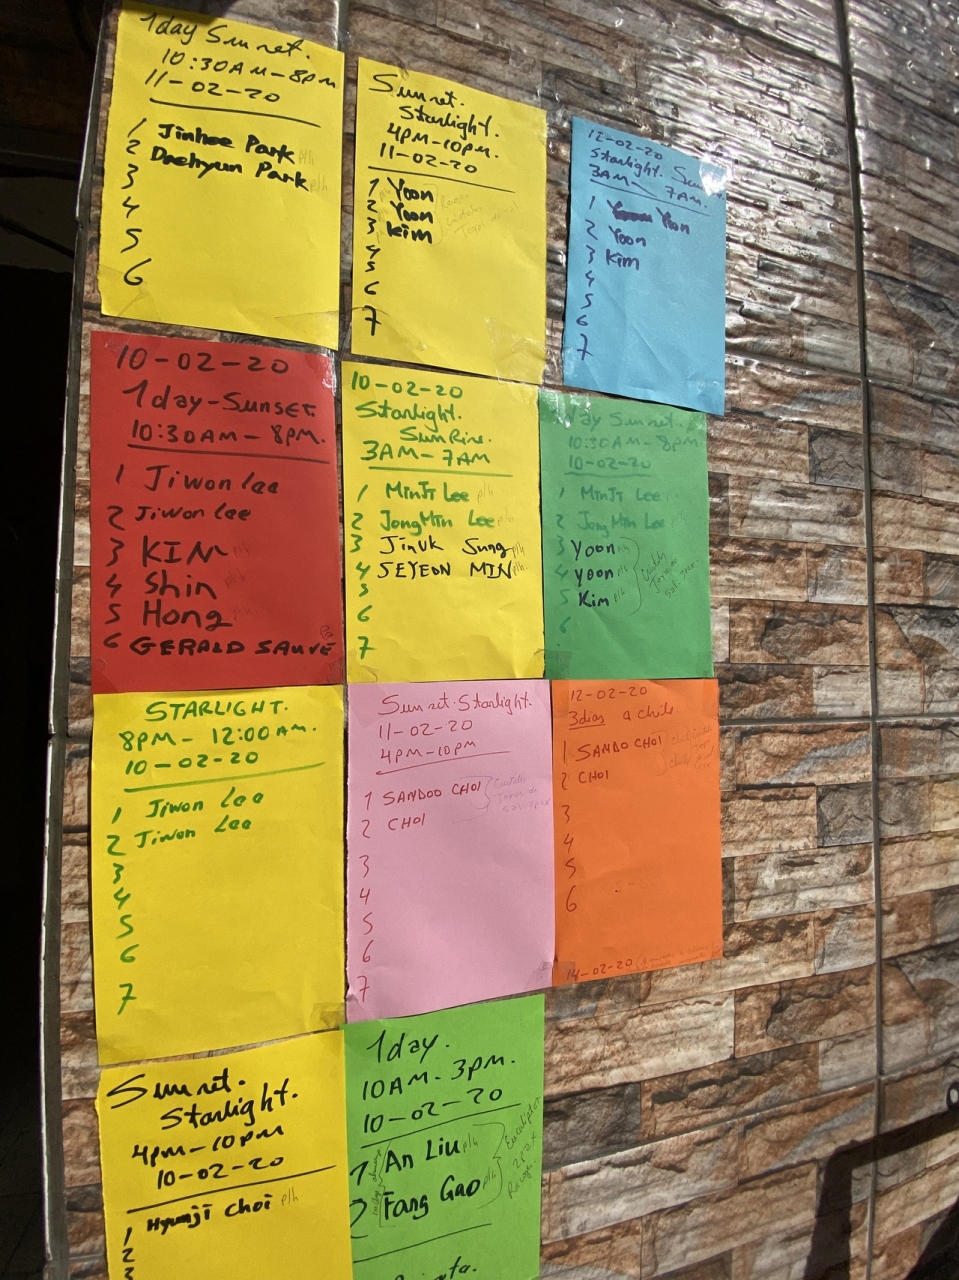 1day Sunset.
10:30AM-8pm
11-02-20
1 Jinhee Park p/h
2 Daehyun Park p/h
3
4
5
6
Sunset.
Starlight.
4PM-10PM.
11-02-20
1 Yoon
2 Yoon
3 Kim
4
5
6
7
12-02-20
Starlight.
3AM 7AM.
1 Yoon
2 Yoon
3 Kim
4
5
6
7
10-02-20
1day-Sunset.
10:30AM-8PM.
1 Jiwon Lee
2 Jiwon Lee
3 KIM
4 Shin
5 Hong
6 GERALD SAUVÉ
10-02-20
Starlight.
SunRise.
3AM-7AM
1 MinJi Lee p/h
2 JongMin Lee p/h
3 Jinuk Sung p/h
4 SEYEON MIN p/h.
5
6
7
1day Sunset.
10:30AM-8pm
10-02-20
1 MinJi Lee
2 JongMin Lee
3 Yoon p/h
4 Yoon p/h
5 Kim p/h
6
STARLIGHT.
8PM-12:00AM.
10-02-20
1 Jiwon Lee
2 Jiwon Lee
3
4
5
6
7
Sunset.Starlight.
11-02-20
4PM-10PM
1 SANDOO CHOI
2 CHOI
3
4
5
6
7
12-02-20
3dias a chile
1 SANDO CHOI
2 CHOI
3
4
5
6
14-02-20
Sunset.
Starlight.
4PM-10PM
10-02-20
1 Hyunji Choi p/h
2
3
1day.
10AM-3PM.
10-02-20
1 An Liu p/h
2 Fang Gao p/h